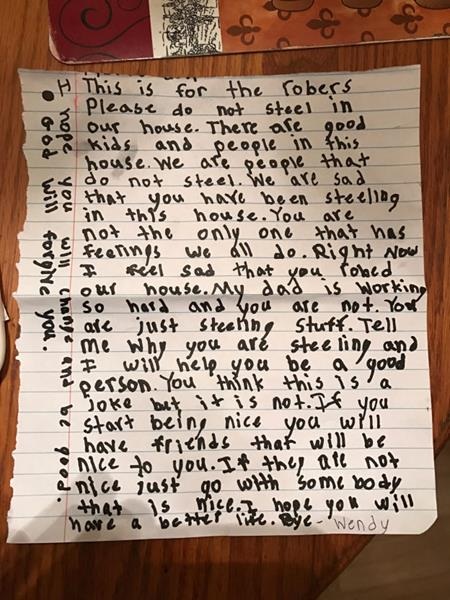 This is for the robers
Please do not steel in
our house. There are good
kids and people in this
house. We are people that
do not steel. We are sad
that you have been steeling
in this house. You are
not the only one that has
feelings we all do. Right Now
I feel sad that you robed
our house. My dad is working
so hard and you are not. You
are just steeling stuff. Tell
me why you are steeling and
I will help you be a good
person. You think this is a
joke but it is not. If you
start being nice you will
have friends that will be
nice to you. If they are not
nice just go with somebody
that is nice. I hope you will
have a better life. Bye - Wendy
I hope you will change and be good.
God will forgive you.